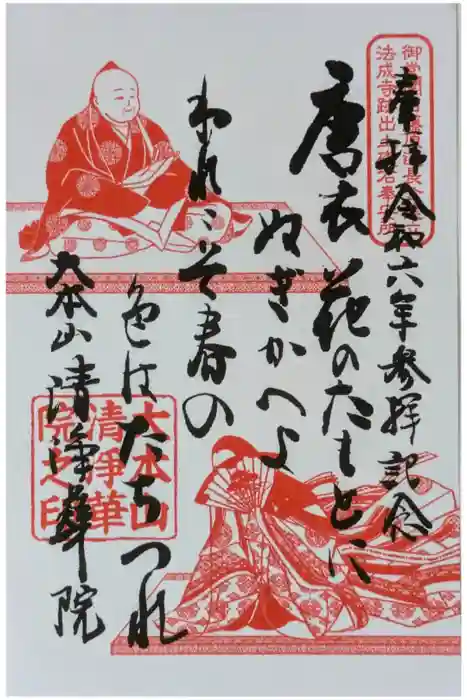 奉拝令和六年参拝記念
唐衣花のたもとに
ぬぎかへよ
われこそ春の
色はたちつれ
大本山清浄華院
大本山
清浄華
院之印